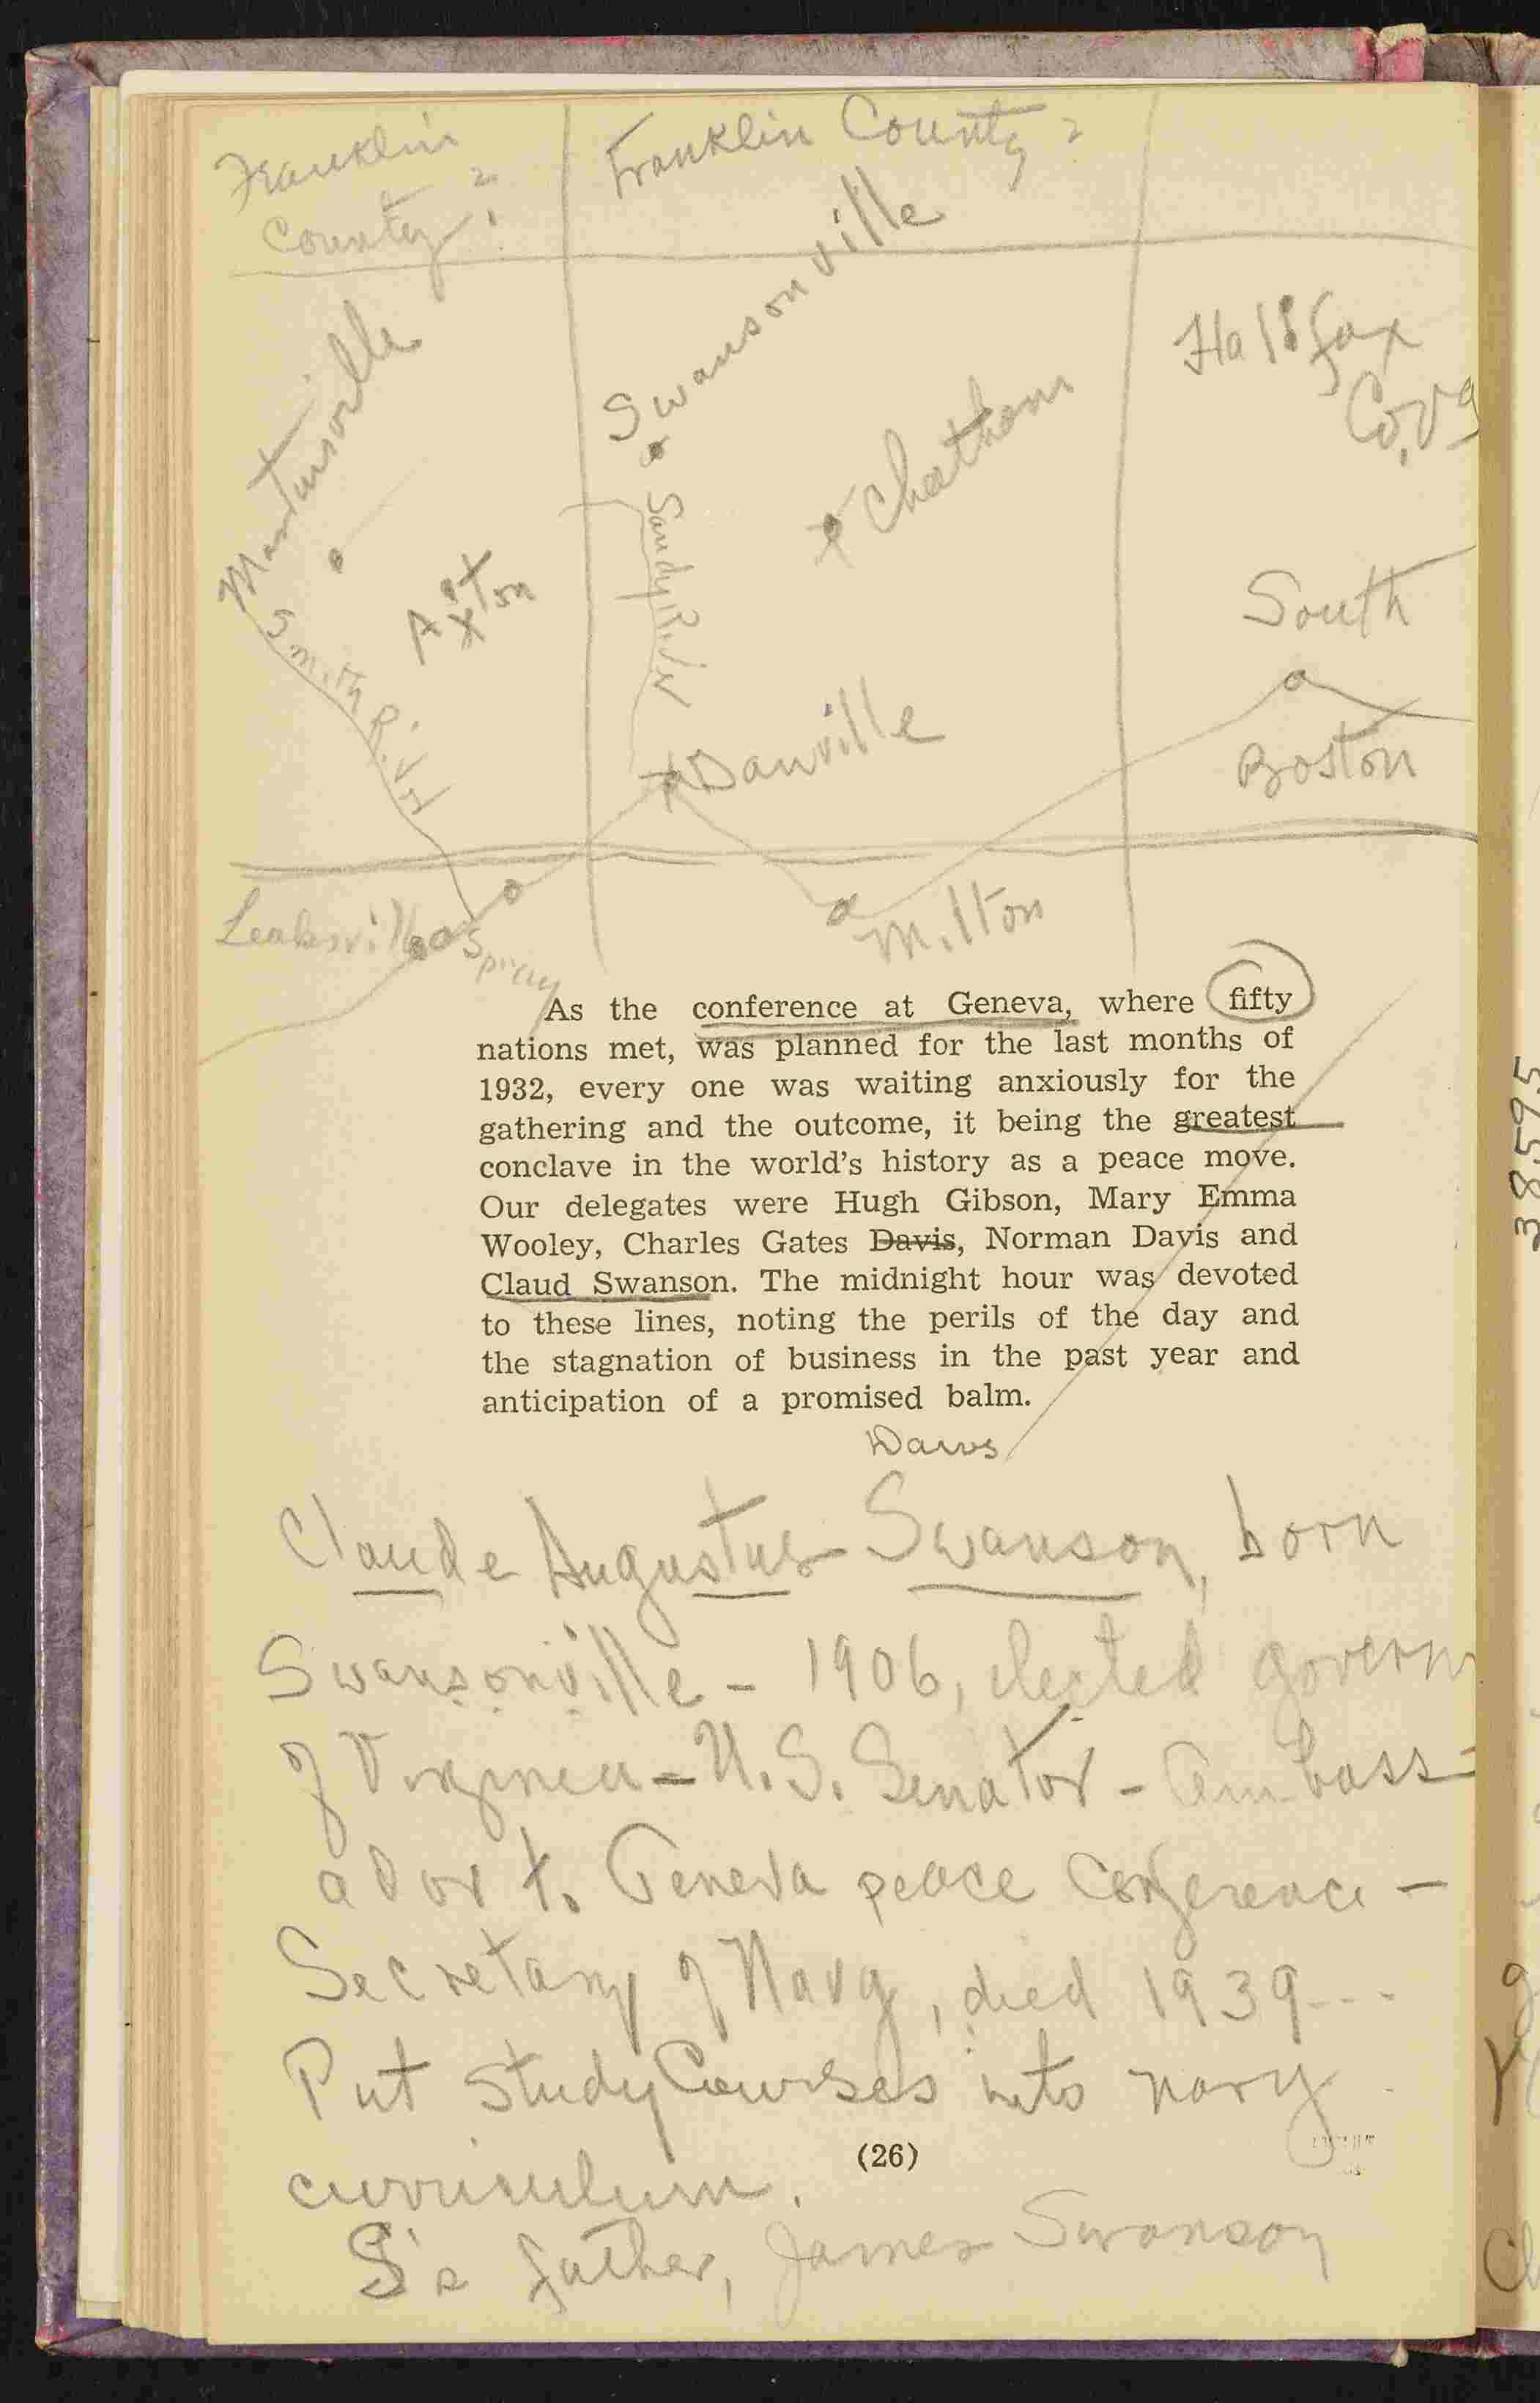 Franklin
County?
Franklin County?
Swansonville
Martinsville
Halifax
Co. Va
Chatham
Axton
Sandy River
Smith River
South
Boston
Danville
Leaksville
Spray
Milton
As the conference at Geneva, where fifty
nations met, was planned for the last months of
1932, every one was waiting anxiously for the
gathering and the outcome, it being the greatest
conclave in the world's history as a peace move.
Our delegates were Hugh Gibson, Mary Emma
Wooley, Charles Gates Davis, Norman Davis and
Claud Swanson. The midnight hour was devoted
to these lines, noting the perils of the day and
the stagnation of business in the past year and
anticipation of a promised balm.
Dawes
Claude Augustus Swanson, born
Swansonville - 1906, elected govern
of Virginia - U.S. Senator - Ambass-
ador to Geneva peace Conference -
Secretary of Navy, died 1939---
Put Study Courses into navy
(26)
curriculum.
S's father, James Swanson
38595